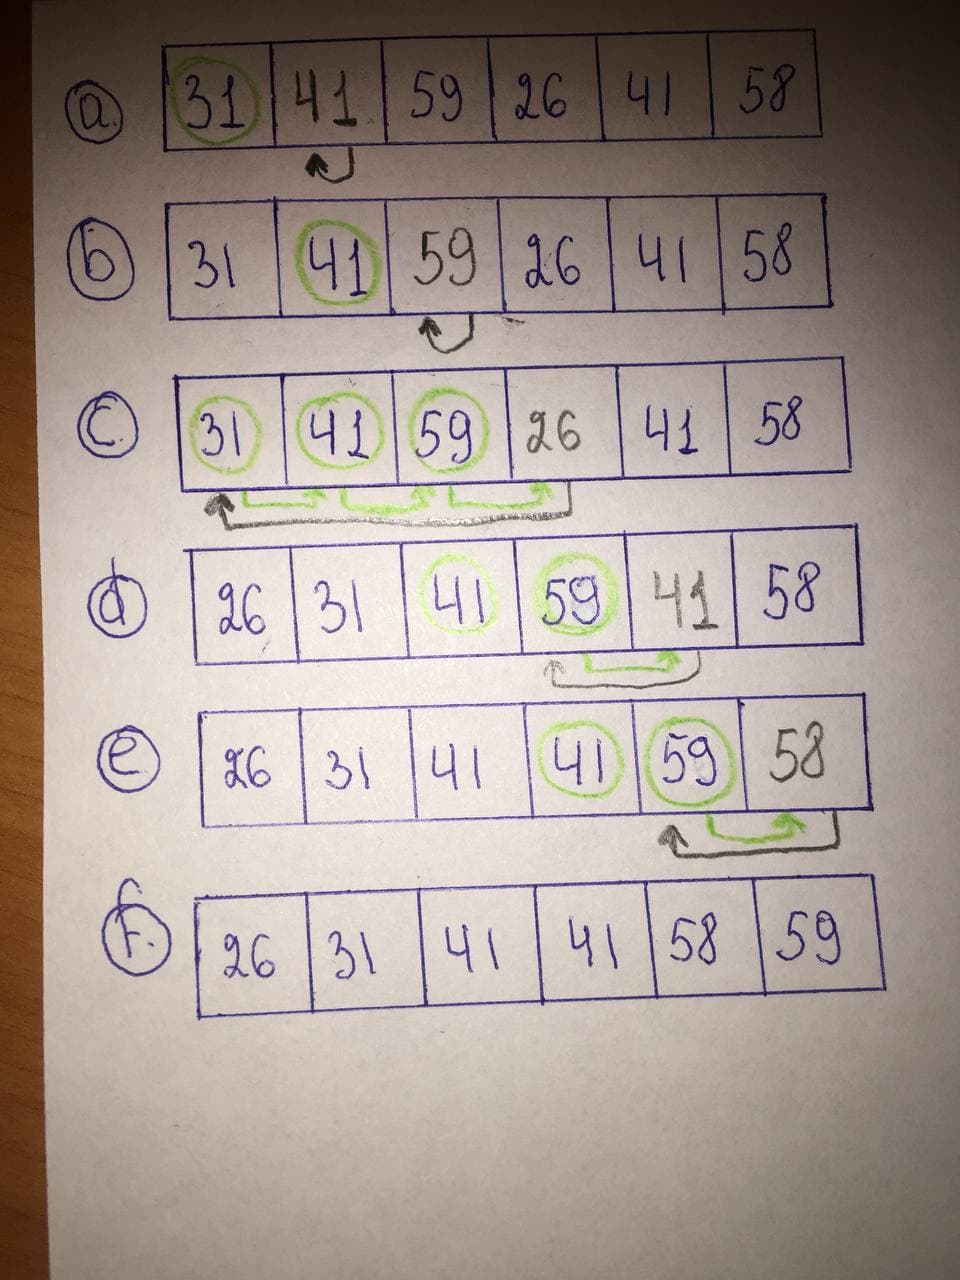 a. 31 41 59 26 41 58
b 31 41 59 26 41 58
c. 31 41 59 26 41 58
d 26 31 41 59 41 58
e 26 31 41 41 59 58
f. 26 31 41 41 58 59